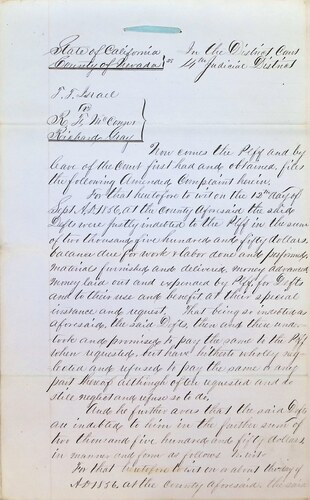 State of California } ss In the District Court
County of Nevada 4th Judicial District
T. T. Israel
vs
R. F. McConn
Richard Gay
Now comes the Piff and by
leave of the Court first had and obtained, files
the following Amended Complaint herein.
For that heretofore to wit on the 12th day of
Sept AD 1856, at the County Aforesaid the said
Defts were justly indebted to the Piff in the sum
of two thousand five hundred and fifty dollars.
balance due for work & labor done and performed
materials furnished and delivered, money advanced
money laid out and expended by Piff, for Defts
and to their use and benefit at their special
instance and request. That being so indebted as
aforesaid, the said Defts, then and there under-
took and promised to pay the same to the Piff
when requested, but have hitherto wholly neg-
lected and refused to pay the same or any
part thereof although often requested and do
still neglect and refuse so to do.
And he further avers that the said Defts
are indebted to him in the further sum of
two thousand five hundred and fifty dollars
in manner and form as follows to wit
For that heretofore to wit on about the day of
AD 1856, at the County aforesaid the said